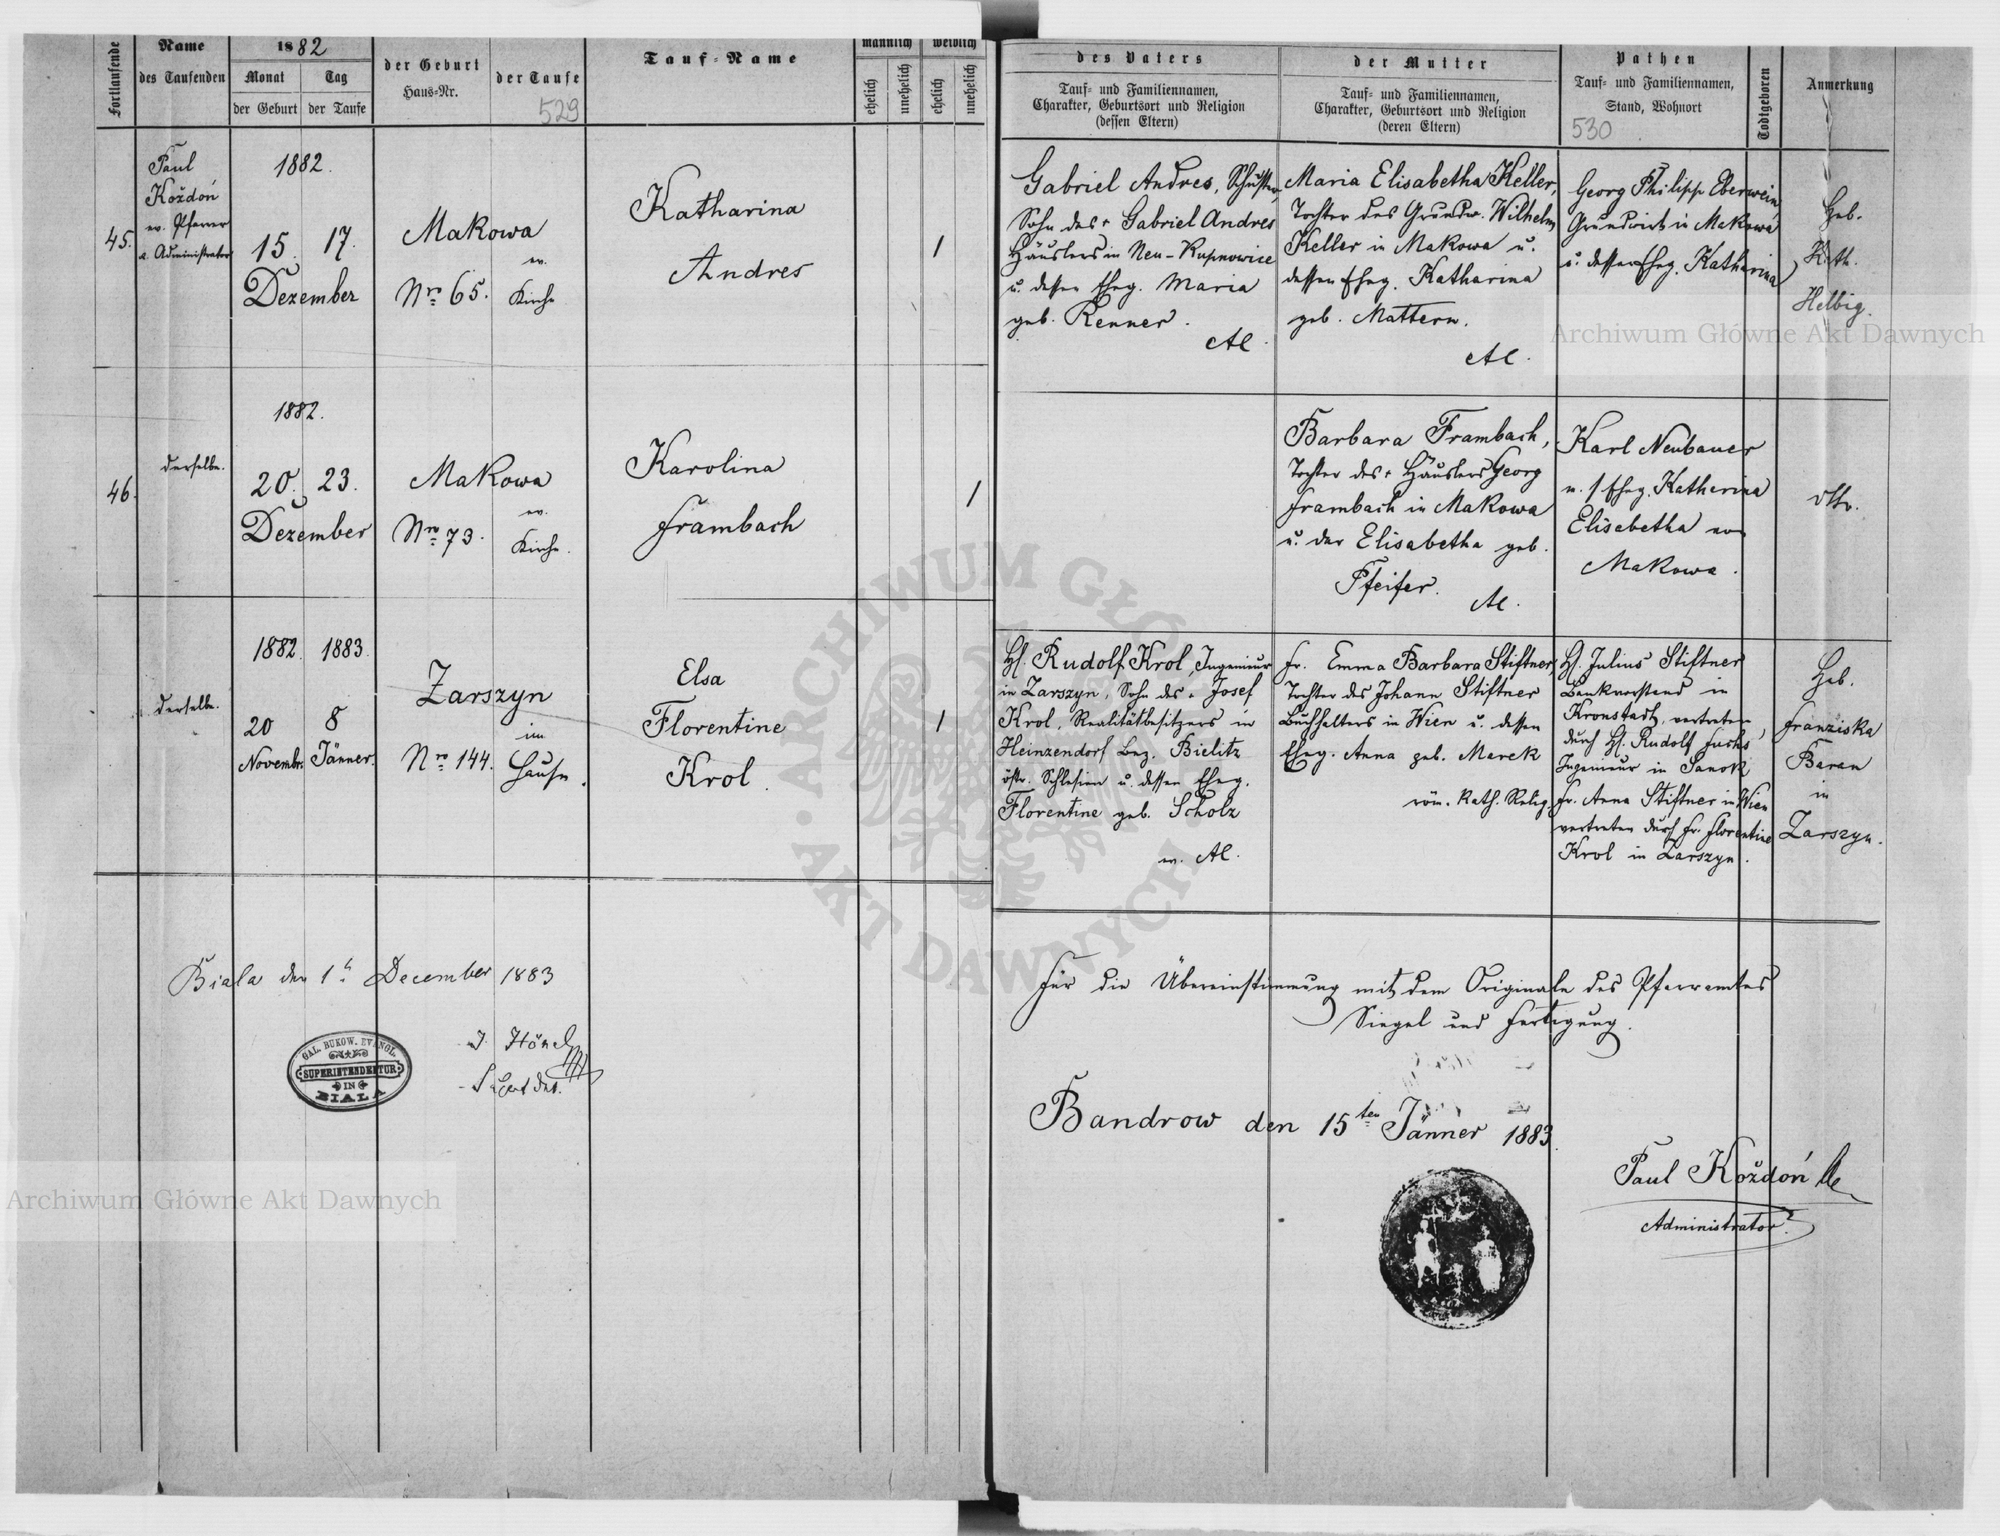 Fortlaufende
Name
des Taufenden
1882
Monat
Tag
der Geburt
der Taufe
der Geburt
Haus-Nr.
der Taufe
529
Tauf-Name
männlich
weiblich
ehelich
unehelich
ehelich
unehelich
des Vaters
Tauf- und Familiennamen,
Charakter, Geburtsort und Religion
(dessen Eltern)
der Mutter
Tauf- und Familiennamen,
Charakter, Geburtsort und Religion
(deren Eltern)
Pathen
Tauf- und Familiennamen,
Stand, Wohnort
530
Todtgeboren
Anmerkung
45.
Paul
Koždoń
ev. Pfarrer
u. Administrator
1882.
15. 17.
Dezember
Makowa
Nro 65.
ev.
Kirche
Katharina
Andres
1
Gabriel Andres, Schuster,
Sohn des + Gabriel Andres
Häuslers in Neu-Kupnowice
u. dessen Eheg. Maria
geb. Renner.
AC.
Maria Elisabetha Keller,
Tochter des Grundw. Wilhelm
Keller in Makowa u.
dessen Eheg. Katharina
geb. Mattern.
AC.
Georg Philipp Eberwein
Grundwirt in Makowa
u. dessen Eheg. Katharina
Heb.
Kath.
Helbig.
46.
derselbe.
1882.
20. 23.
Dezember
Makowa
Nro 73.
ev.
Kirche.
Karolina
Frambach
1
Barbara Frambach,
Tochter des + Häuslers Georg
Frambach in Makowa
u. der Elisabetha geb.
Pfeifer.
AC.
Karl Neubauer
u. s. Eheg. Katharina
Elisabetha von
Makowa.
derselbe.
1882. 1883.
20 8
Novembr. Jänner.
Zarszyn
Nro 144.
im
Hause.
Elsa
Florentine
Krol.
1
H. Rudolf Krol, Ingenieur
in Zarszyn, Sohn des + Josef
Krol, Realitätbesitzers in
Heinzendorf Bez. Bielitz
östr. Schlesien u. dessen Eheg.
Florentine geb. Scholz
ev. AC.
Fr. Emma Barbara Stiftner,
Tochter des Johann Stiftner
Buchhalters in Wien u. dessen
Eheg. Anna geb. Marek
röm. Kath. Relig.
H. Julius Stiftner
Bankvorstand in
Kronstadt, vertreten
durch H. Rudolf Fuchs,
Ingenieur in Sanok
Fr. Anna Stiftner in Wien
vertreten durch Fr. Florentine
Krol in Zarszyn.
Heb.
Franziska
Baran
in
Zarszyn.
Biala den 1t December 1883
GAL. BUKOW. EVANGL.
SUPERINTENDENTUR
IN
BIALA
J. Hönel
Für die Übereinstimmung mit dem Originale des Pfarramtes
Siegel und Fertigung.
Bandrow den 15ten Jänner 1883.
Paul Koždoń
Administrator.
Archiwum Główne Akt Dawnych
ARCHIWUM GŁÓWNE
AKT DAWNYCH
Archiwum Główne Akt Dawnych